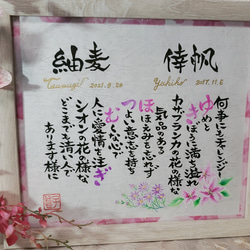 倖帆
Yukiho 2017.11.6
何事にもチャレンジ
ゆめと
きぼうに満ち溢れ
カサブランカの花の様な
気品のある
ほほえみを忘れず
紬麦
Tsumugi 2021.9.28
つよい意志を持ち
むく心で
人に愛情を注ぎ
シオンの花の様な
どこまでも清い人で
あります様に